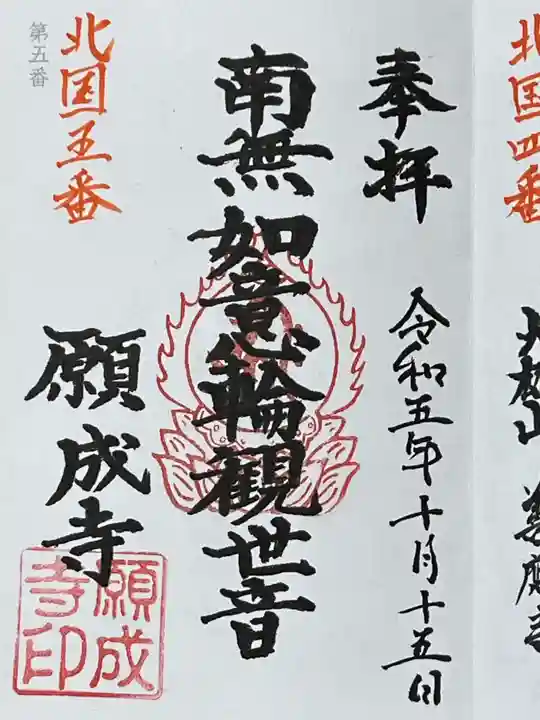 北国四番
奉拝
令和五年十月十五日
南無如意輪観世音
第五番
北国五番
願成寺
願成寺印